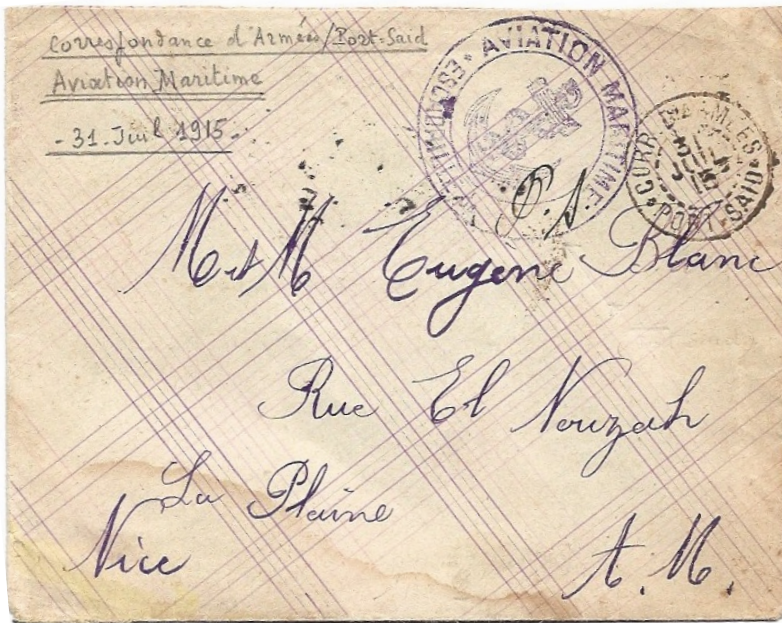 Correspondance d'Armées/Port-Said
Aviation Maritime
- 31. Juil 1915 -
AVIATION MARITIME
CORR. D'ARMEES
PORT-SAID
M et M Eugene Blanc
Rue El Nouzah
La Plaine
Nice
A. M.